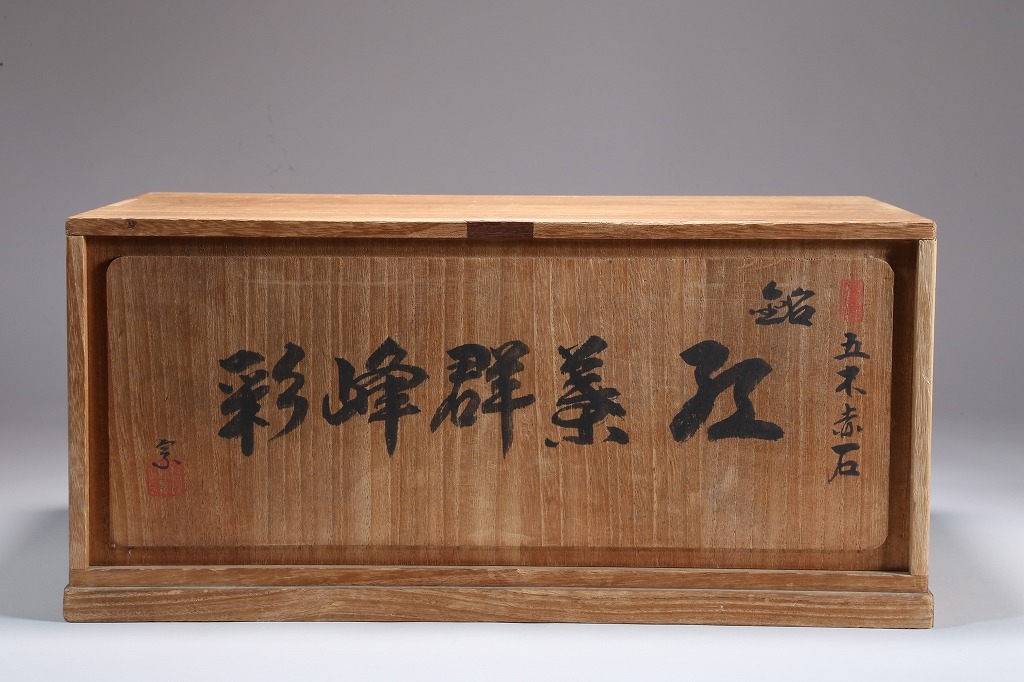 五木赤石
銘
紅葉群峰彩